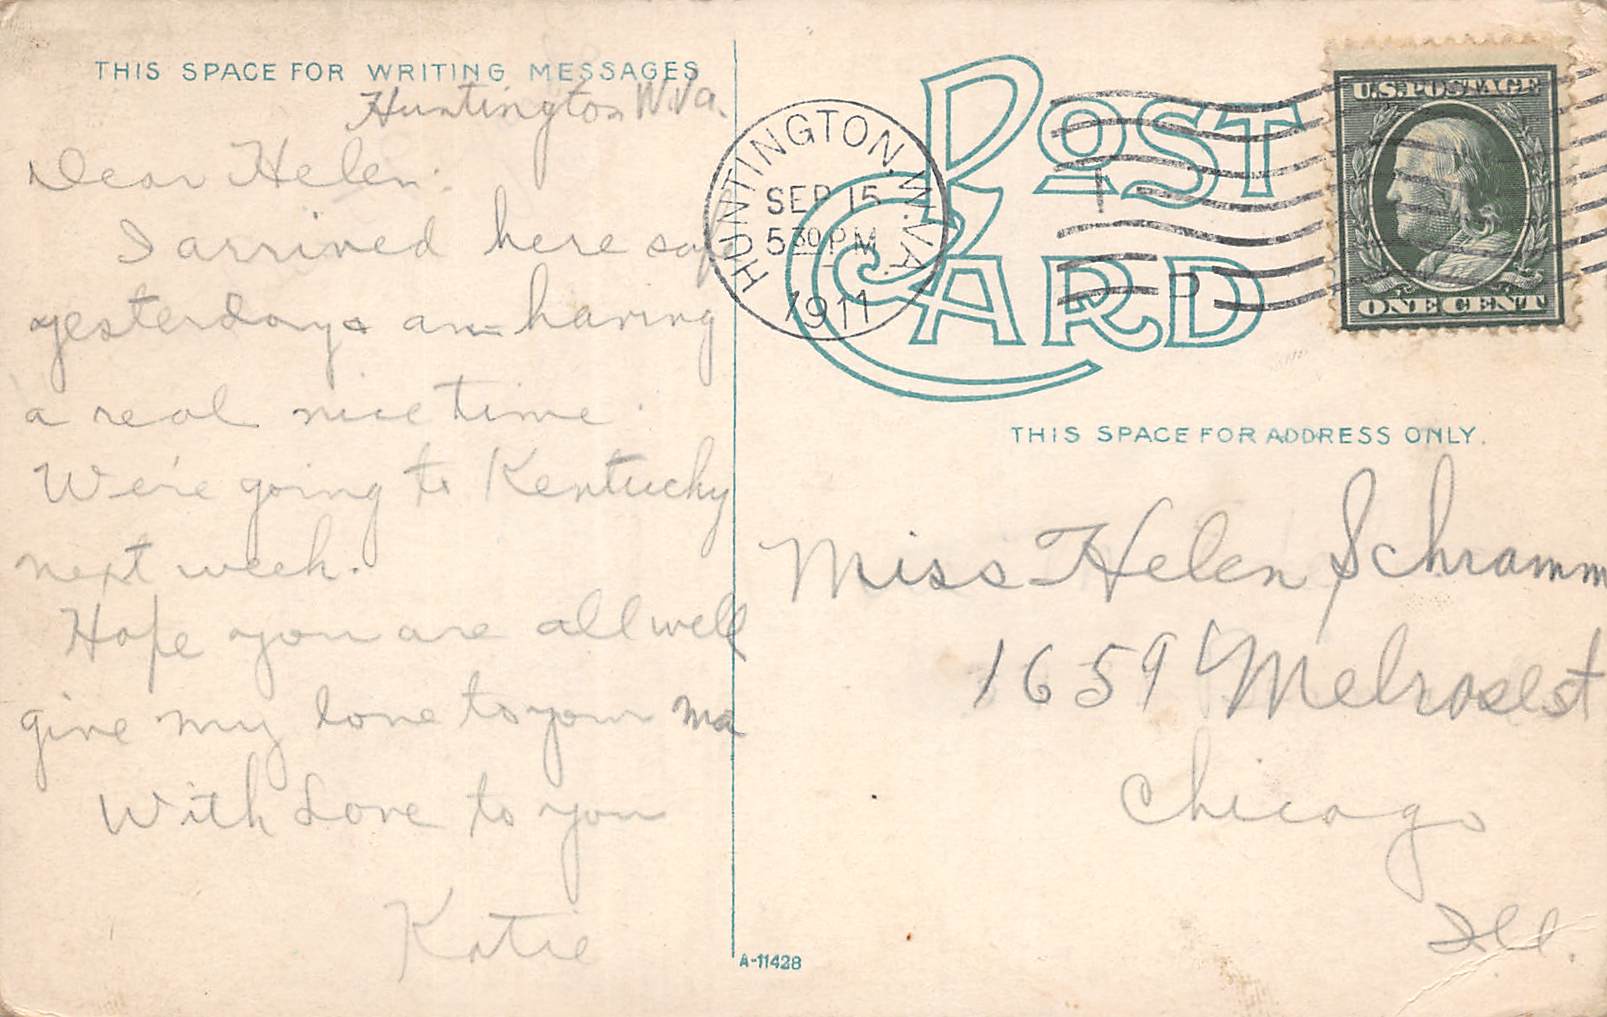 THIS SPACE FOR WRITING MESSAGES
Huntington W.Va.
Dear Helen:
I arrived here saf
yesterday & am having
a real nice time.
We're going to Kentucky
next week.
Hope you are all well
give my love to your ma
With Love to you
Katie
A-11428
POST
CARD
HUNTINGTON. W. VA.
SEP 15
5 30 P M
1911
U.S. POSTAGE
ONE CENT
THIS SPACE FOR ADDRESS ONLY.
Miss Helen Schramm
1659 Melrose st
Chicago
Ill.